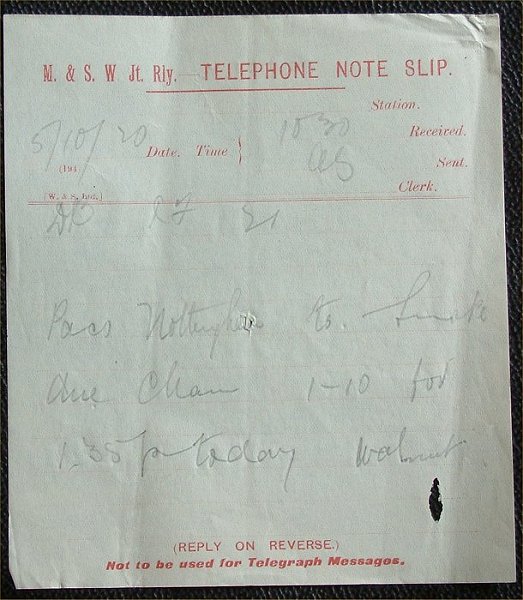 M. & S. W Jt. Rly. — TELEPHONE NOTE SLIP.
Station.
5/10/20 Date. Time } 10 30 Received.
(191 Sent.
(W. & S., Ltd.) Clerk.
31
Pacs Nottingham to
due Cham 1-10 for
1.35 p today walnut
(REPLY ON REVERSE.)
Not to be used for Telegraph Messages.